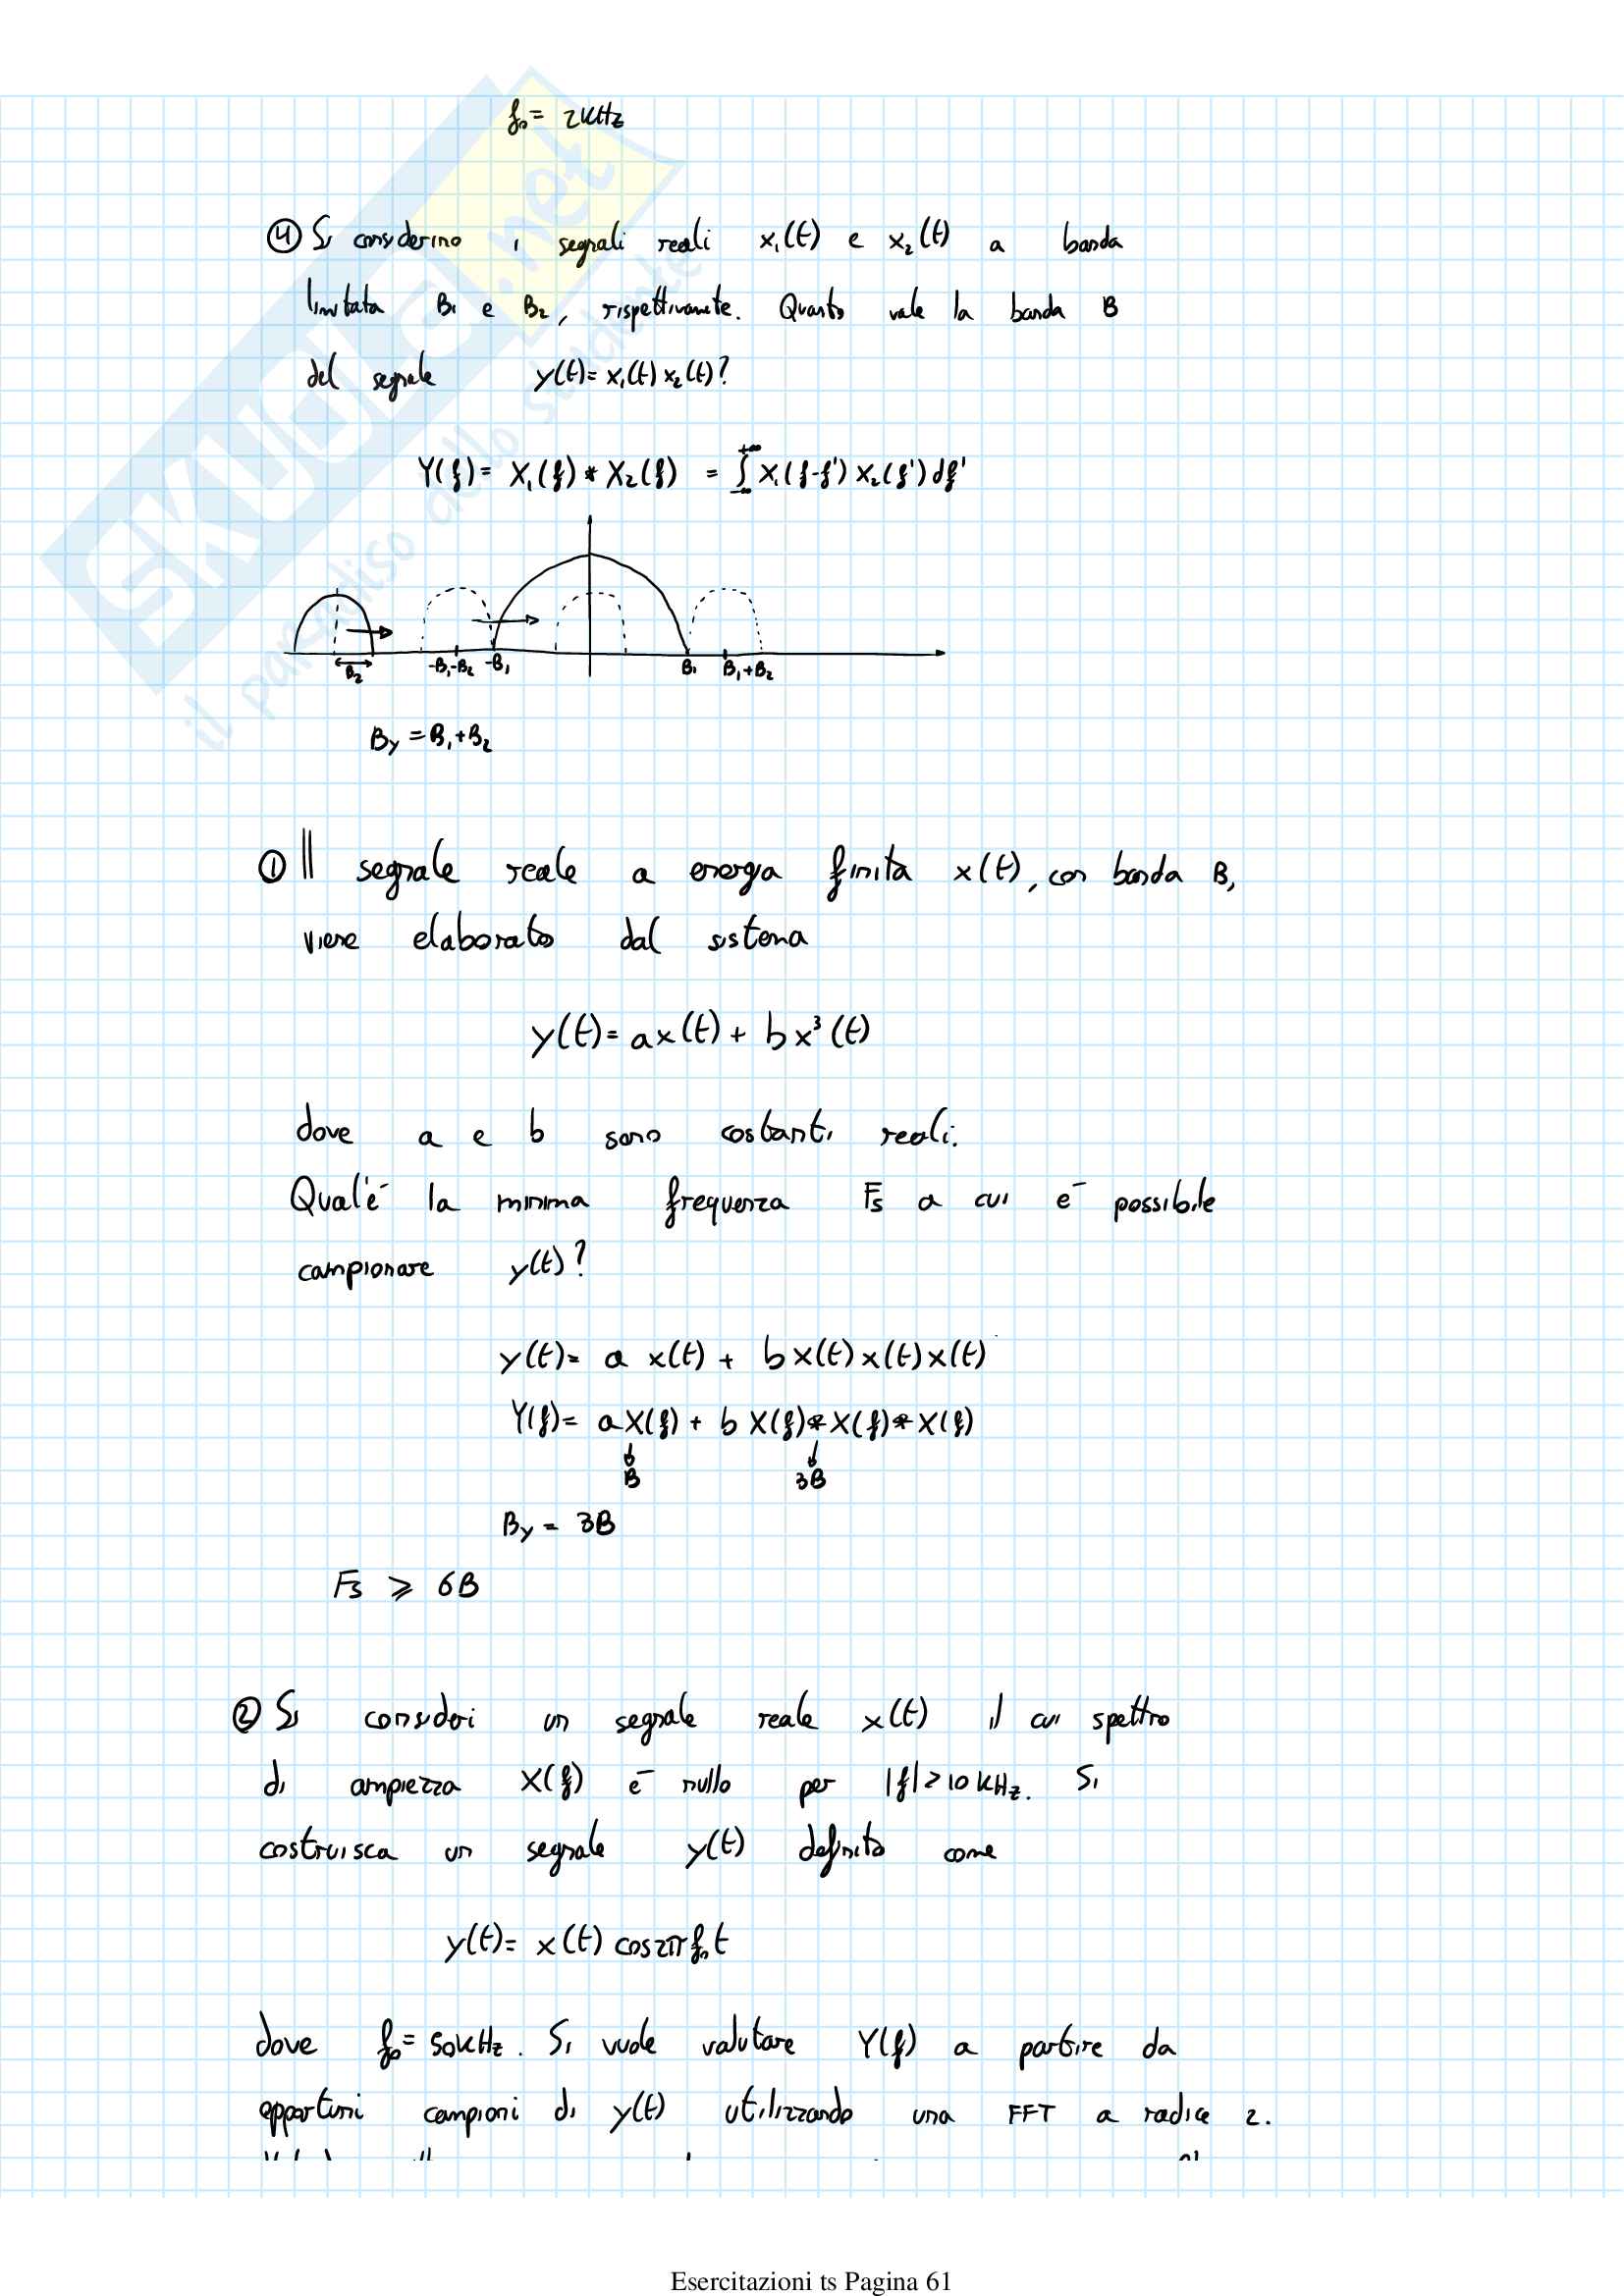 f₀ = 2KHz
④ Si considerino i segnali reali x₁(t) e x₂(t) a banda
limitata B₁ e B₂, rispettivamente. Quanto vale la banda B
del segnale y(t)= x₁(t) x₂(t)?
Y(f)= X₁(f) * X₂(f) = ∫_{-∞}^{+∞} X₁(f-f') X₂(f') df'
B₂ -B₁-B₂ -B₁ B₁ B₁+B₂
By = B₁+B₂
① Il segnale reale a energia finita x(t), con banda B,
viene elaborato dal sistema
y(t)= ax(t) + bx³(t)
dove a e b sono costanti reali.
Qual'è la minima frequenza Fs a cui è possibile
campionare y(t)?
y(t)= a x(t) + b x(t) x(t) x(t)
Y(f)= a X(f) + b X(f) * X(f) * X(f)
↓ ↓
B 3B
By = 3B
Fs ⩾ 6B
② Si consideri un segnale reale x(t) il cui spettro
di ampiezza X(f) è nullo per |f|>10 KHz. Si
costruisca un segnale y(t) definito come
y(t)= x(t) cos2πf₀t
dove f₀= 50KHz. Si vuole valutare Y(f) a partire da
opportuni campioni di y(t) utilizzando una FFT a radice 2.
SKUOLA.net
il paradiso dello studente
Esercitazioni ts Pagina 61